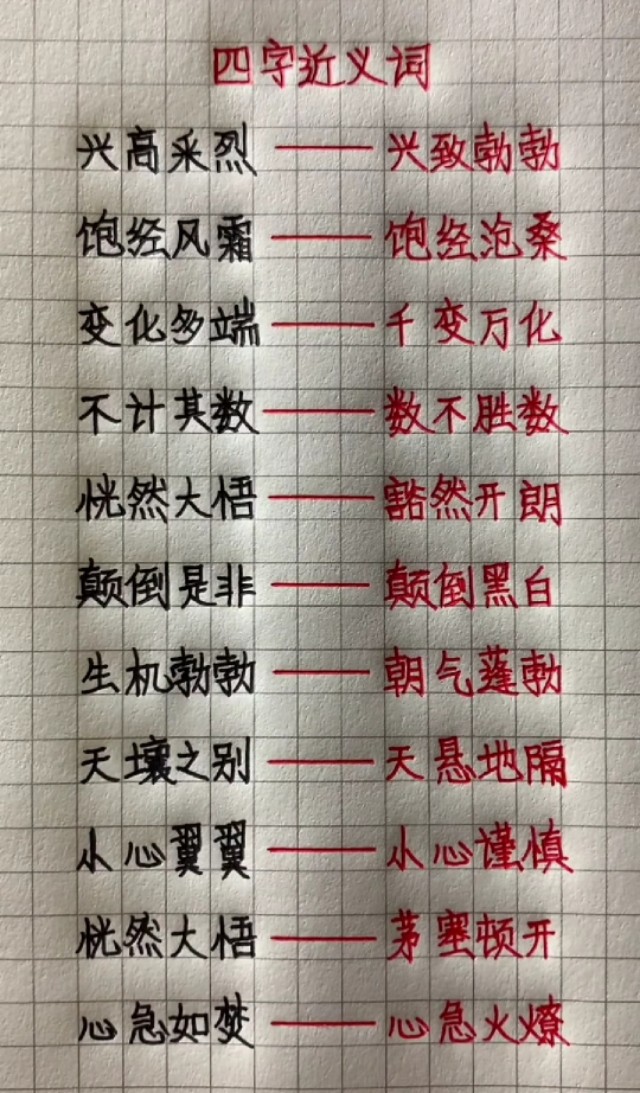 四字近义词
兴高采烈——兴致勃勃
饱经风霜——饱经沧桑
变化多端——千变万化
不计其数——数不胜数
恍然大悟——豁然开朗
颠倒是非——颠倒黑白
生机勃勃——朝气蓬勃
天壤之别——天悬地隔
小心翼翼——小心谨慎
恍然大悟——茅塞顿开
心急如焚——心急火燎